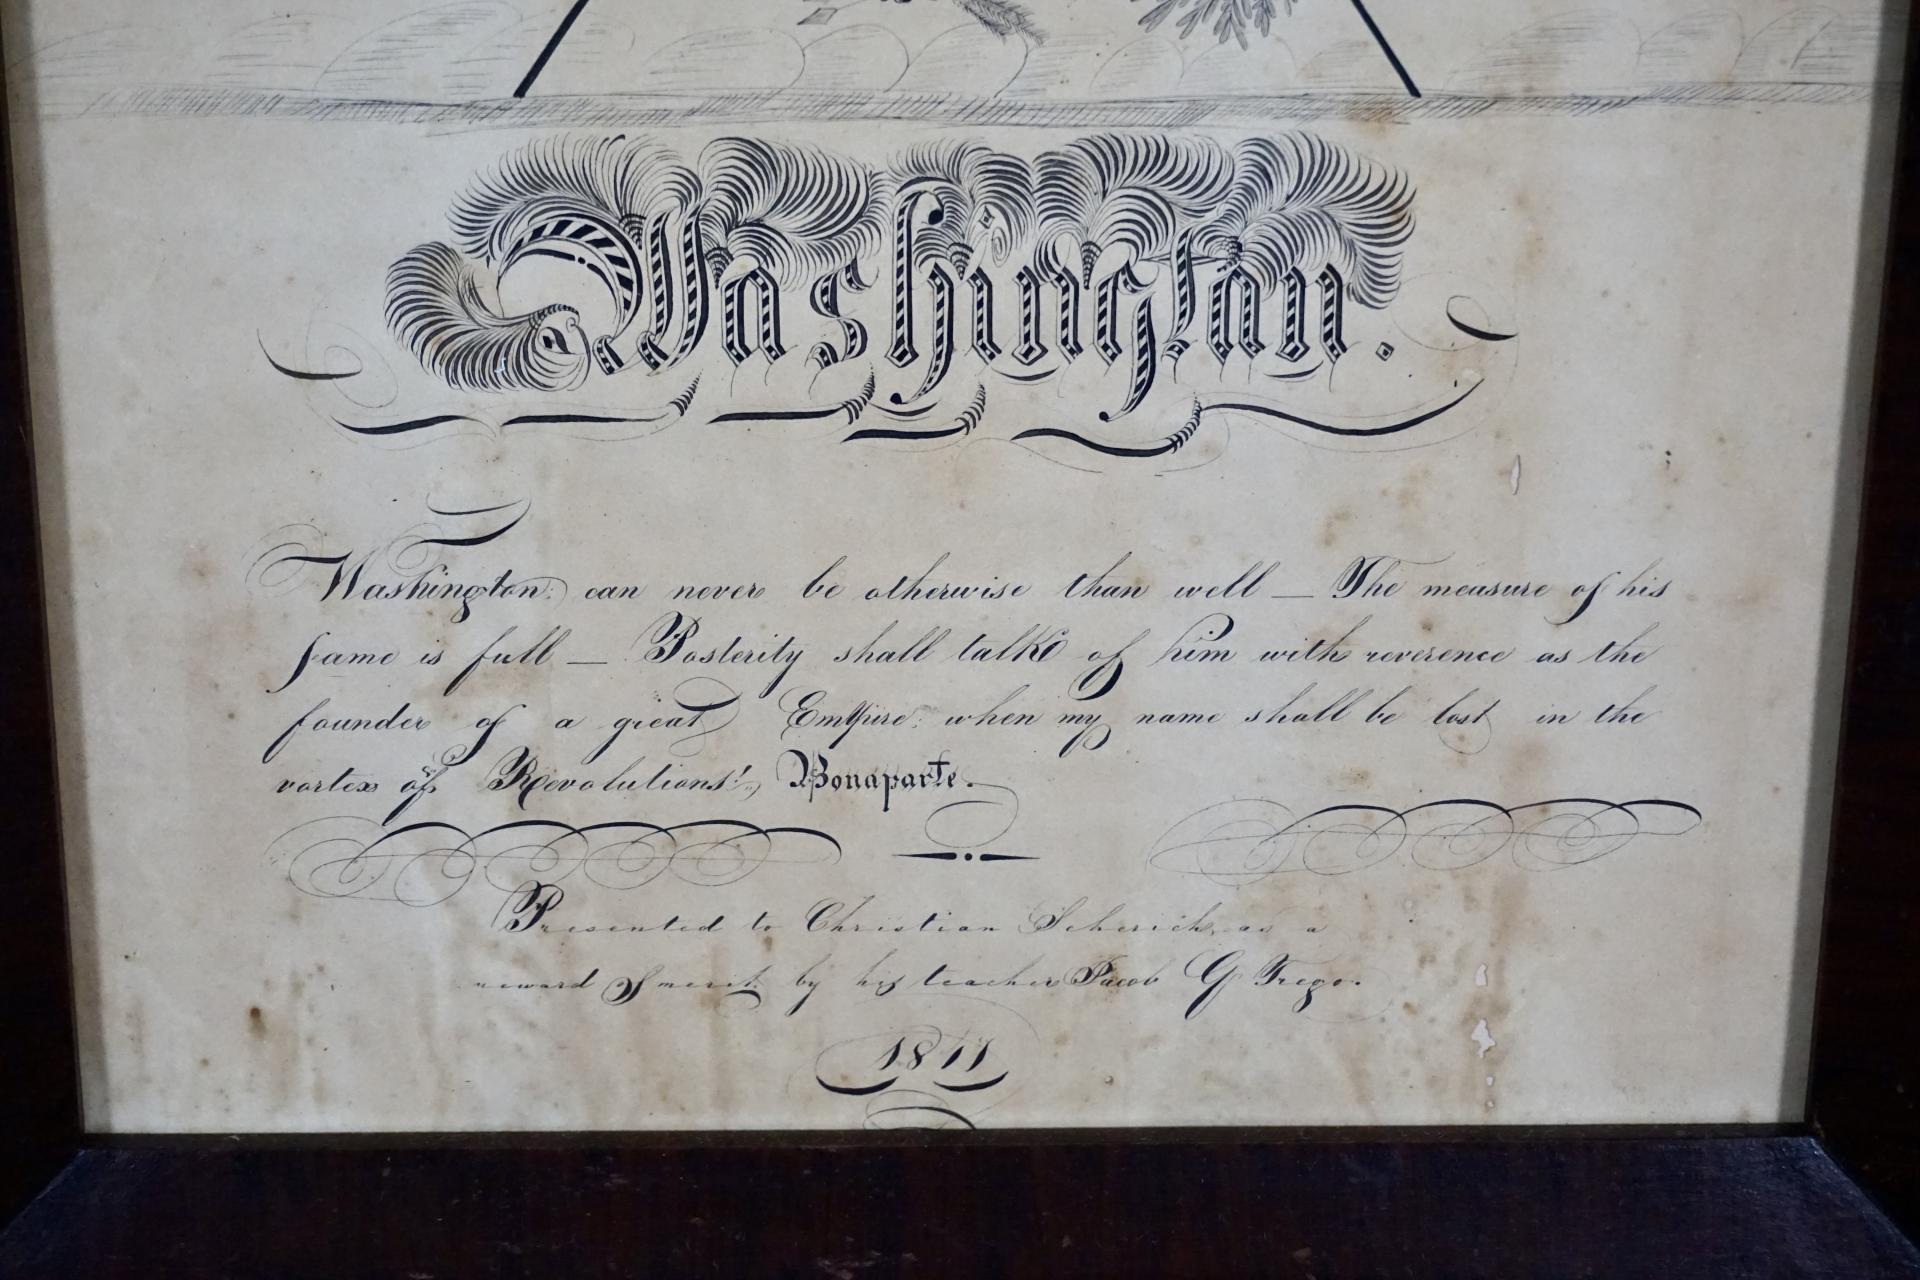 Washington.
Washington: can never be otherwise than well — The measure of his
fame is full — Posterity shall talk of him with reverence as the
founder of a great Empire: when my name shall be lost in the
vortex of Revolutions! Bonaparte.
Presented to Christian Scherich, as a
reward of merit by his teacher Jacob G Trego.
18